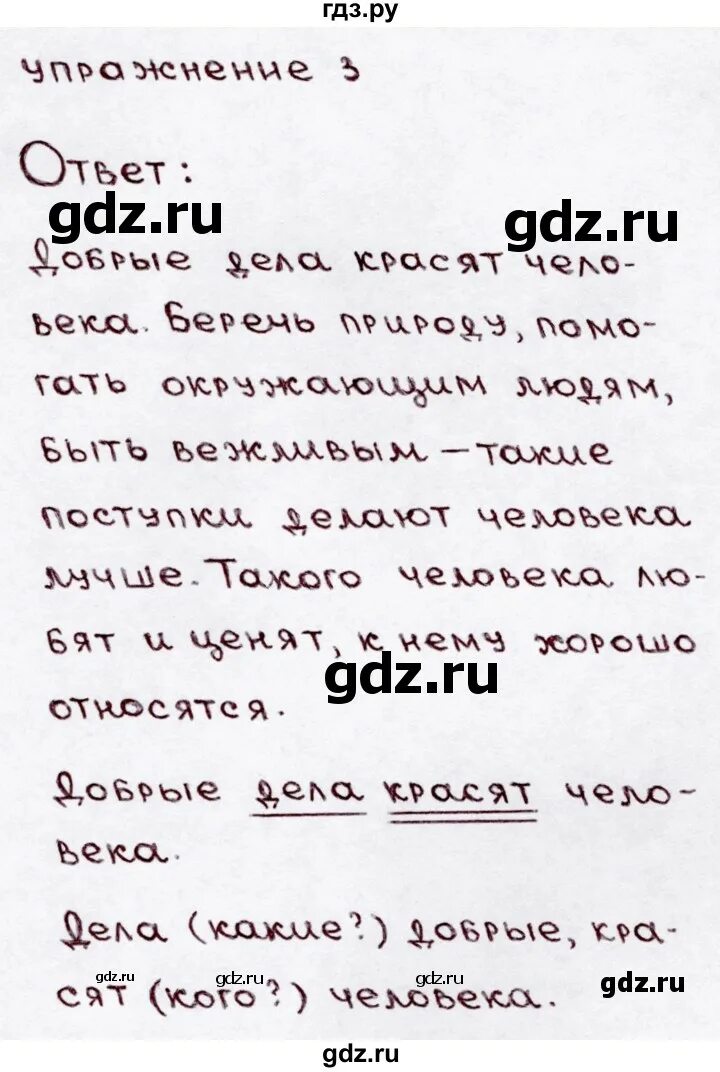 гдз.ру
упражнение 3
Ответ:
gdz.ru
gdz.ru
Добрые дела красят чело-
века. Беречь природу, помо-
гать окружающим людям,
быть вежливым – такие
поступки делают человека
лучше. Такого человека лю-
бят и ценят, к нему хорошо
gdz.ru
относятся.
Добрые дела красят чело-
века.
Дела (какие?) добрые, кра-
сят (кого?) человека.
gdz.ru
gdz.ru
gdz.ru
gdz.ru
gdz.ru